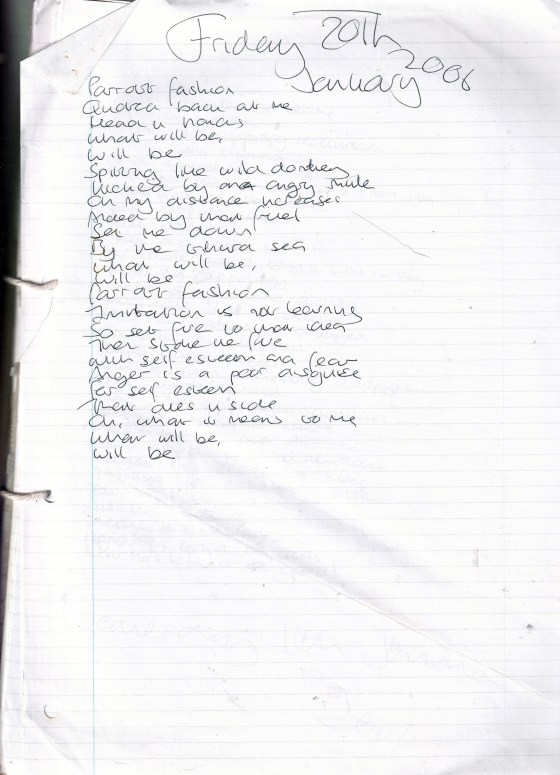 Friday 20th
January 2006
Parrot fashion
Quoted back at me
Head in hands
What will be,
Will be
Spitting like wild donkey
by angry mule
Oh my distance increases
Aided by that fuel
Set me down
By the third sea
What will be,
Will be
Parrot fashion
Imitation is not learning
So set fire to that idea
Then stoke the fire
With self esteem and fear
Anger is a poor disguise
For self esteem
That dies inside
Oh, what it means to me
What will be,
will be